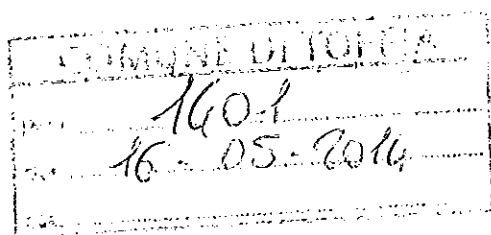 COMUNE DI TOFFIA
1401
16 - 05 - 2014